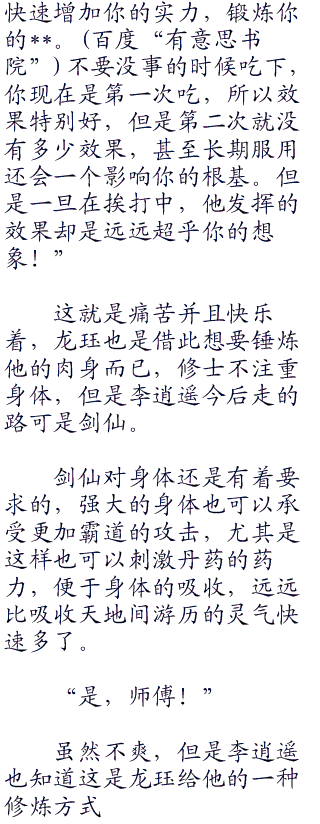 快速增加你的实力，锻炼你
的**。(百度“有意思书
院”)不要没事的时候吃下，
你现在是第一次吃，所以效
果特别好，但是第二次就没
有多少效果，甚至长期服用
还会一个影响你的根基。但
是一旦在挨打中，他发挥的
效果却是远远超乎你的想
象！”
这就是痛苦并且快乐
着，龙珏也是借此想要锤炼
他的肉身而已，修士不注重
身体，但是李逍遥今后走的
路可是剑仙。
剑仙对身体还是有着要
求的，强大的身体也可以承
受更加霸道的攻击，尤其是
这样也可以刺激丹药的药
力，便于身体的吸收，远远
比吸收天地间游历的灵气快
速多了。
“是，师傅！”
虽然不爽，但是李逍遥
也知道这是龙珏给他的一种
修炼方式